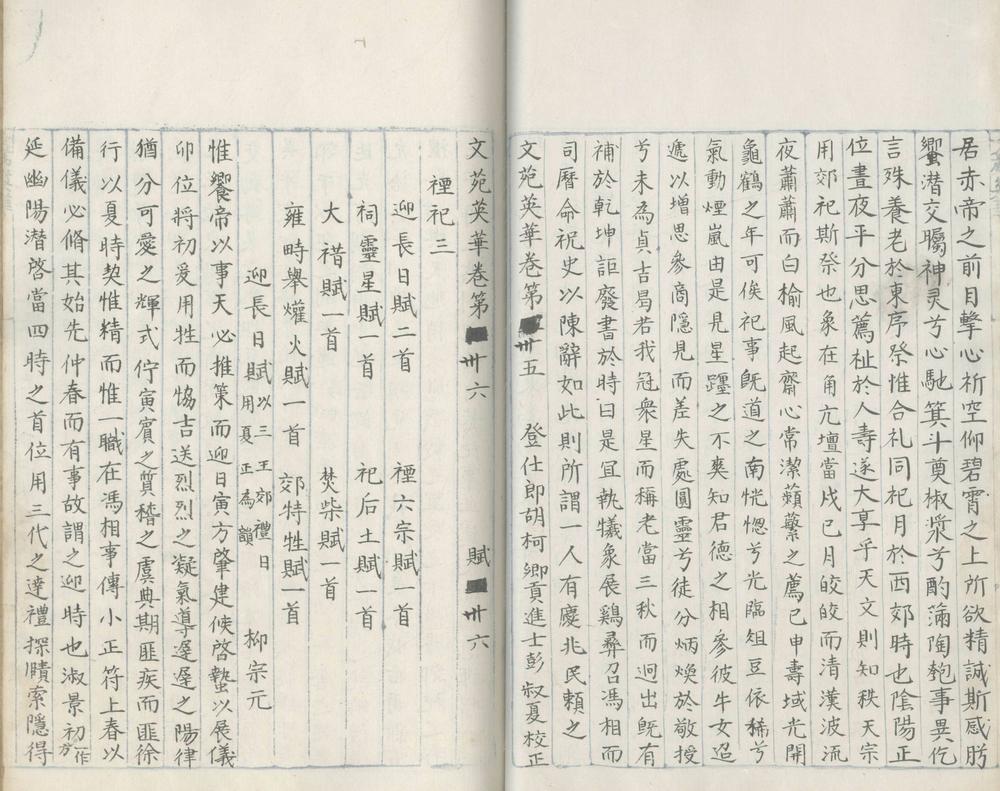 居赤帝之前目擊心祈空仰碧霄之上所欲精誠斯感肹
蠁潜交矚神灵兮心馳箕斗奠椒漿兮酌滿陶匏事異仡
言殊養老於東序祭惟合礼同祀月於西郊時也陰陽正
位晝夜平分思薦祉於人壽遂大享乎天文則知秩天宗
用郊祀斯祭也象在角亢壇當戌巳月皎皎而清漢波流
夜蕭蕭而白榆風起齋心常潔蘋蘩之薦已申壽域光開
龜鶴之年可俟祀事既道之南恍惚兮光臨俎豆依稀兮
氣動煙嵐由是見星躔之不爽知君德之相參彼牛女迢
遞以增思參商隱見而差失處圓靈兮徒分炳煥於敬授
兮未為貞吉曷若我冠衆星而稱老當三秋而迥出既有
補於乾坤詎廢書於時日是宜執犧象展鷄彝召馮相而
司曆命祝史以陳辭如此則所謂一人有慶兆民頼之
文苑英華卷第卅五 登仕郎胡柯 鄉貢進士彭叔夏校正
文苑英華卷第卅六 賦卅六
禋祀三
迎長日賦二首 禋六宗賦一首
祠靈星賦一首 祀后土賦一首
大𥛱賦一首 焚柴賦一首
雍畤舉爟火賦一首 郊特牲賦一首
迎長日賦 以三王郊禮日用夏正為韻 柳宗元
惟饗帝以事天必推策而迎日寅方肇建候啓蟄以展儀
卯位將初爰用牲而恊吉送烈烈之凝氣導遲遲之陽律
猶分可愛之輝式佇寅賓之質稽之虞典期匪疾而匪徐
行以夏時契惟精而惟一職在馮相事傳小正符上春以
備儀必脩其始先仲春而有事故謂之迎時也淑景初一作方
延幽陽潜啓當四時之首位用三代之達禮探賾索隱得